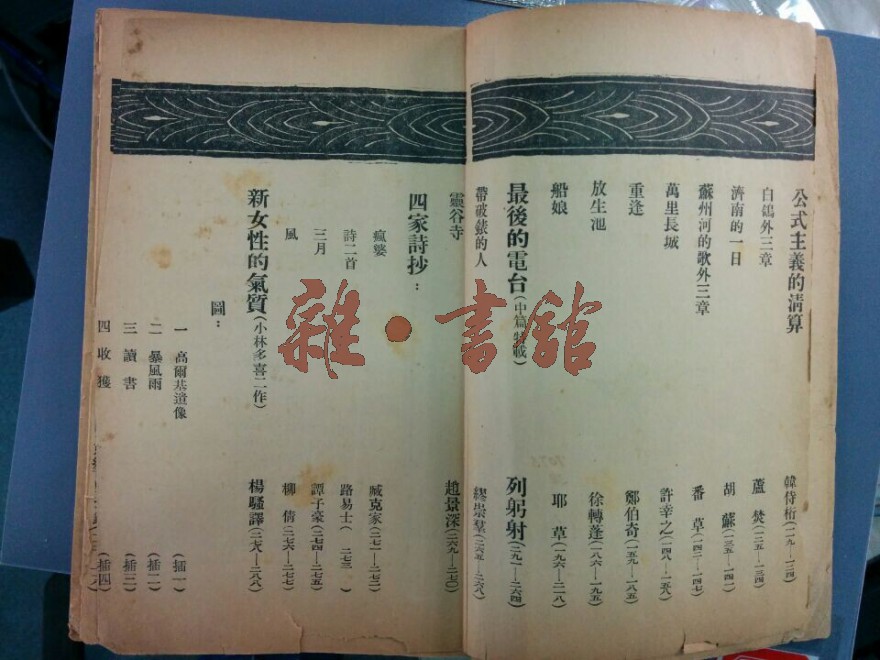 公式主義的清算 韓侍桁(一一九—一二四)
白鴿外三章 蘆焚(一二五—一三四)
濟南的一日 胡蘇(一三五—一四一)
蘇州河的歌外三章 番草(一四二—一四七)
萬里長城 許幸之(一四八—一五八)
重逢 鄭伯奇(一五九—一八五)
放生池 徐轉蓬(一八六—一九五)
船娘 耶草(一九六—二一八)
最後的電台(中篇特載) 列躬射
帶破錶的人 繆崇羣(二六五—二六八)
靈谷寺 趙景深(二六九—二七〇)
四家詩抄：
瘋婆 臧克家
詩二首 路易士(二七三)
三月 譚子豪(二七四—二七五)
風 柳倩(二七六—二七七)
新女性的氣質(小林多喜二作) 楊騷譯(二七八—二八八)
圖：
一 高爾基遺像 (插一)
二 暴風雨 (插二)
三 讀書 (插三)
四 收獲 (插四)
雜·書館